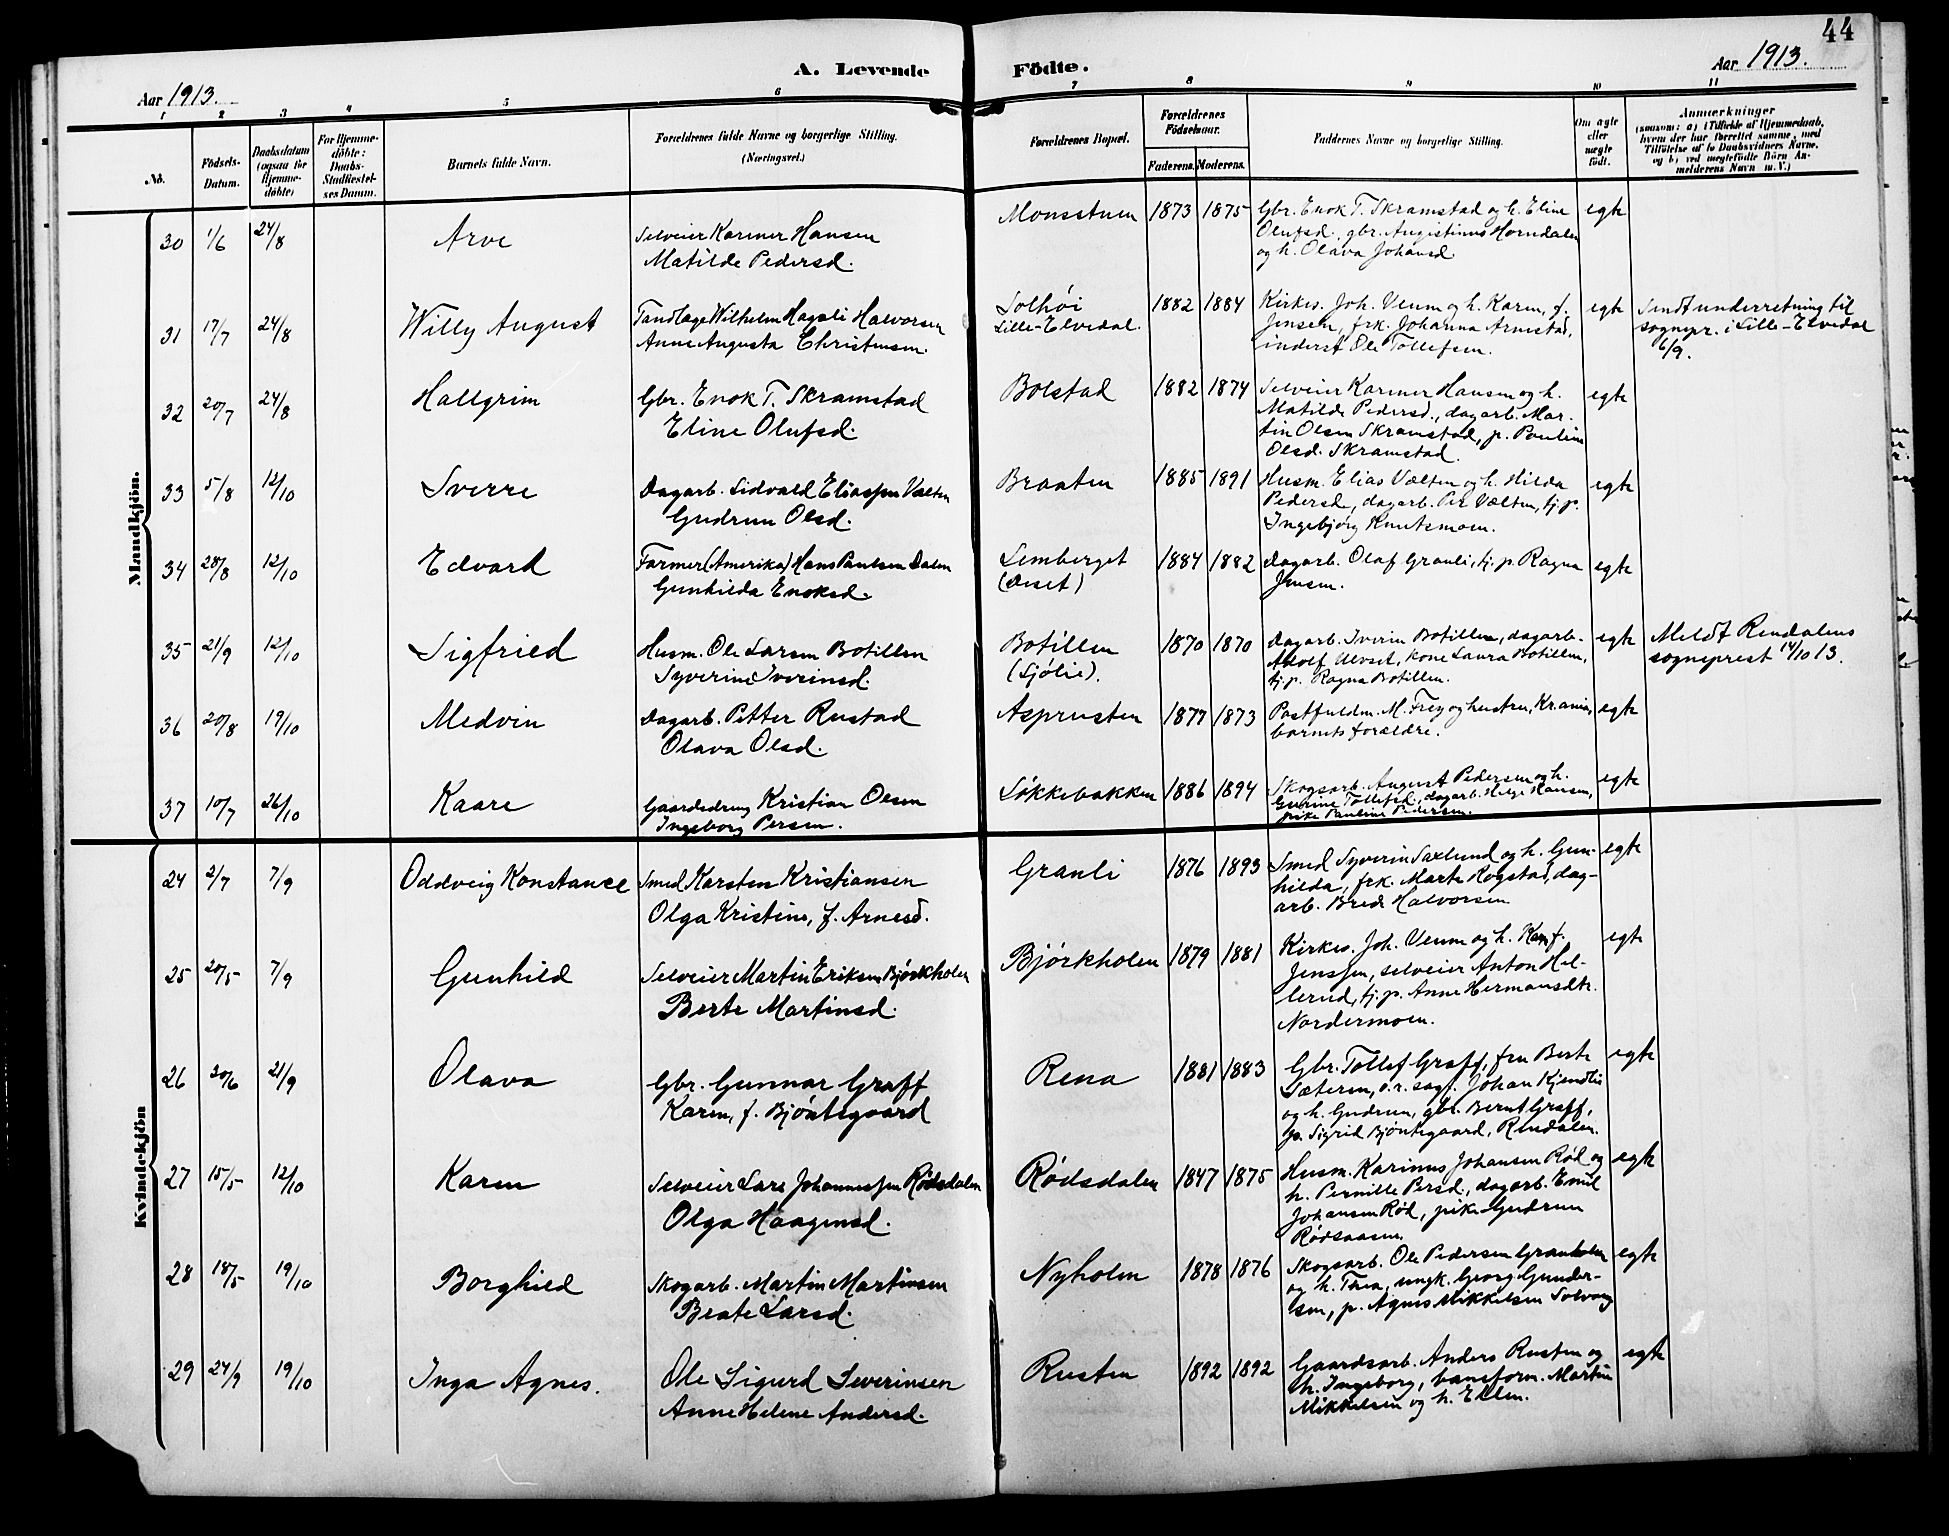 44
A. Levende Födte.
Aar 1913.
Aar 1913.
1 2 3 4 5 6 7 8 9 10 11
No.
Födsels-Datum.
Daabsdatum (ogsaa for Hjemme-döbte)
For Hjemme-döbte: Daabs-Stadfæstel-ses Datum.
Barnets fulde Navn.
Forældrenes fulde Navne og borgerlige Stilling. (Næringsvei.)
Forældrenes Bopæl.
Forældrenes Födselsaar.
Faderens. Moderens.
Faddernes Navne og borgerlige Stilling.
Om ægte eller uægte födt.
Anmærkninger
(saasom: a) i Tilfælde af Hjemmedaab,
hvem der har forrettet samme, med
Tilföielse af to Daabsvidners Navne,
og b) ved uegtefödte Börn An-
melderens Navn m. V.)
Mandkjön.
30 1/6 24/8 Arve Selveier Karmer Hansen Monsstuen 1873 1875 Gbr. Enok T. Skramstad og h. Eline egte
Matilde Pedersd. Olufsd., gbr. Augustinus Horndalen
og h. Olava Johansd.
31 17/7 24/8 Willy August Tandlæge Wilhelm Hagali Halvorsen Solhøi 1882 1884 Kirkes. Joh. Veum og h. Karen, f. egte Sendt underretning til
Anne Augusta Christensen. Lille-Elvedal. Jensen, frk. Johanna Arnestad, sognepr. i Lille-Elvedal
inderst Ole Tollefsen. 6/9.
32 20/7 24/8 Hallgrim Gbr. Enok T. Skramstad Bolstad 1882 1874 Selveier Karmer Hansen og h. egte
Eline Olufsd. Matilde Pedersd., dagarb. Mar-
tin Olsen Skramstad, p. Pauline
Olsd. Skramstad.
33 5/8 12/10 Sverre Dagarb. Sidvald Eliassen Vælten Braaten 1885 1891 Husm. Elias Vælten og h. Hilda egte
Gudrun Olsd. Pedersd., dagarb. Per Vælten, tj.p.
Ingebjørg Knutsmoen.
34 28/8 12/10 Edvard Farmer (Amerika) Hans Paulsen Dalen Lemberget 1884 1882 Dagarb. Olaf Granli, tj. p. Ragna egte
Gunhilda Enoksd. (Deset) Jensen.
35 21/9 12/10 Sigfried Husm. Ole Larsen Botillen Botillen 1870 1870 Dagarb. Iverin Botillen, dagarb. egte Meldt Rendalens
Syverine Iverinsd. (Sjølie). Adolf Ulvset, kone Laura Botillen, sogneprest 14/10 13.
tj.p. Ragna Botillen.
36 20/8 19/10 Medvin Dagarb. Petter Rustad Asprusten 1877 1873 Postfuldm. M. Frey og hustru, Kr.ania, egte
Olava Olsd. barnets forældre.
37 10/7 26/10 Kaare Gaardsdreng Kristian Olsen Løkkebakken 1886 1894 Skogsarb. August Pedersen og h. egte
Ingeborg Persen. Gurine Tollefsd., dagarb. Helge Hansen,
pike Pauline Pedersen.
Kvindekjön
24 2/7 7/9 Oddveig Konstance Smed Karsten Kristiansen Granli 1876 1893 Smed Syverin Saxlund og h. Gun- egte
Olga Kristine, f. Arnesd. hilda, frk. Marte Kogstad, dag-
arb. Brede Halvorsen
25 20/5 7/9 Gunhild Selveier Martin Eriksen Bjørkholen Bjørkholen 1879 1881 Kirkes. Joh. Veum og h. Karen f. egte
Berte Martinsd. Jenssen, selveier Anton Hol-
lerud, tj. p. Anne Hermansdtr.
Nordermoen.
26 20/6 21/9 Olava Gbr. Gunnar Graff Rena 1881 1883 Gbr. Tollef Graff, fru Berte egte
Karen, f. Bjøntegaard Sæteren, o.r.sagf. Johan Kjendlie
og h. Gudrun, gbr. Bernt Graff,
p. Sigrid Bjøntegaard, Rendalen.
27 15/5 12/10 Karen Selveier Lars Johannessen Rødsdalen Rødsdalen 1847 1875 Husm. Karinus Johansen Rød og egte
Olga Haagensd. h. Pernille Persd., dagarb. Emil
Johansen Rød, pike Gudrun
Rødsaasen
28 18/5 19/10 Borghild Skogarb. Martin Martinsen Nyholen 1878 1876 Skogsarb. Ole Pedersen Granholen egte
Beate Larsd. og h. Thea, ungk. Georg Gunder-
sen, p. Agnes Mikkelsen Solvang
29 24/9 19/10 Inga Agnes. Ole Sigurd Severinsen Rusten 1892 1892 Gaardsarb. Anders Rusten og egte
Anne Helene Andersd. h. Ingeborg, baneform. Martin
Mikkelsen og h. Ellen.